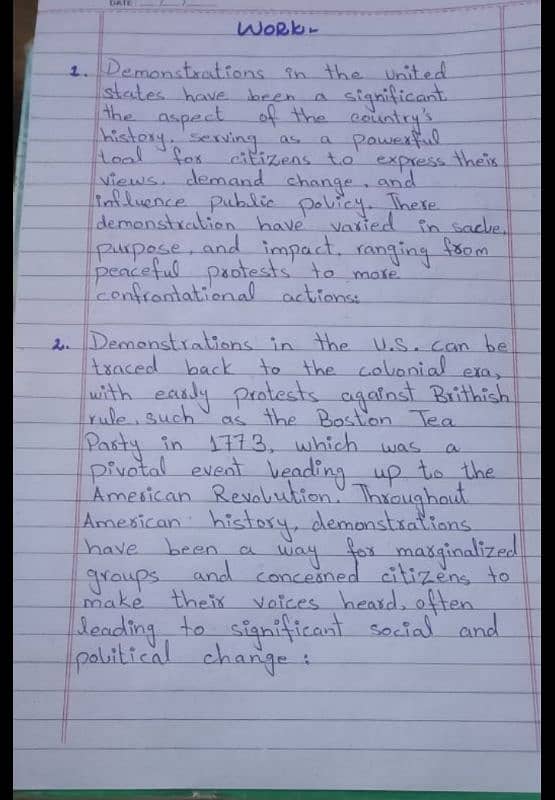 DATE
WORK-
1. Demonstrations in the united
states have been a significant
the aspect of the country's
history, serving as a powerful
tool for citizens to express their
views. demand change, and
influence public policy. There
demonstration have varied in sacle,
purpose, and impact, ranging from
peaceful protests to more
confrontational actions:
2. Demonstrations in the U.S. can be
traced back to the colonial era,
with early protests against Brithish
rule, such as the Boston Tea
Party in 1773, which was a
pivotal event leading up to the
American Revolution. Throughout
American history, demonstrations
have been a way for marginalized
groups and concerned citizens to
make their voices heard, often
leading to significant social and
political change :